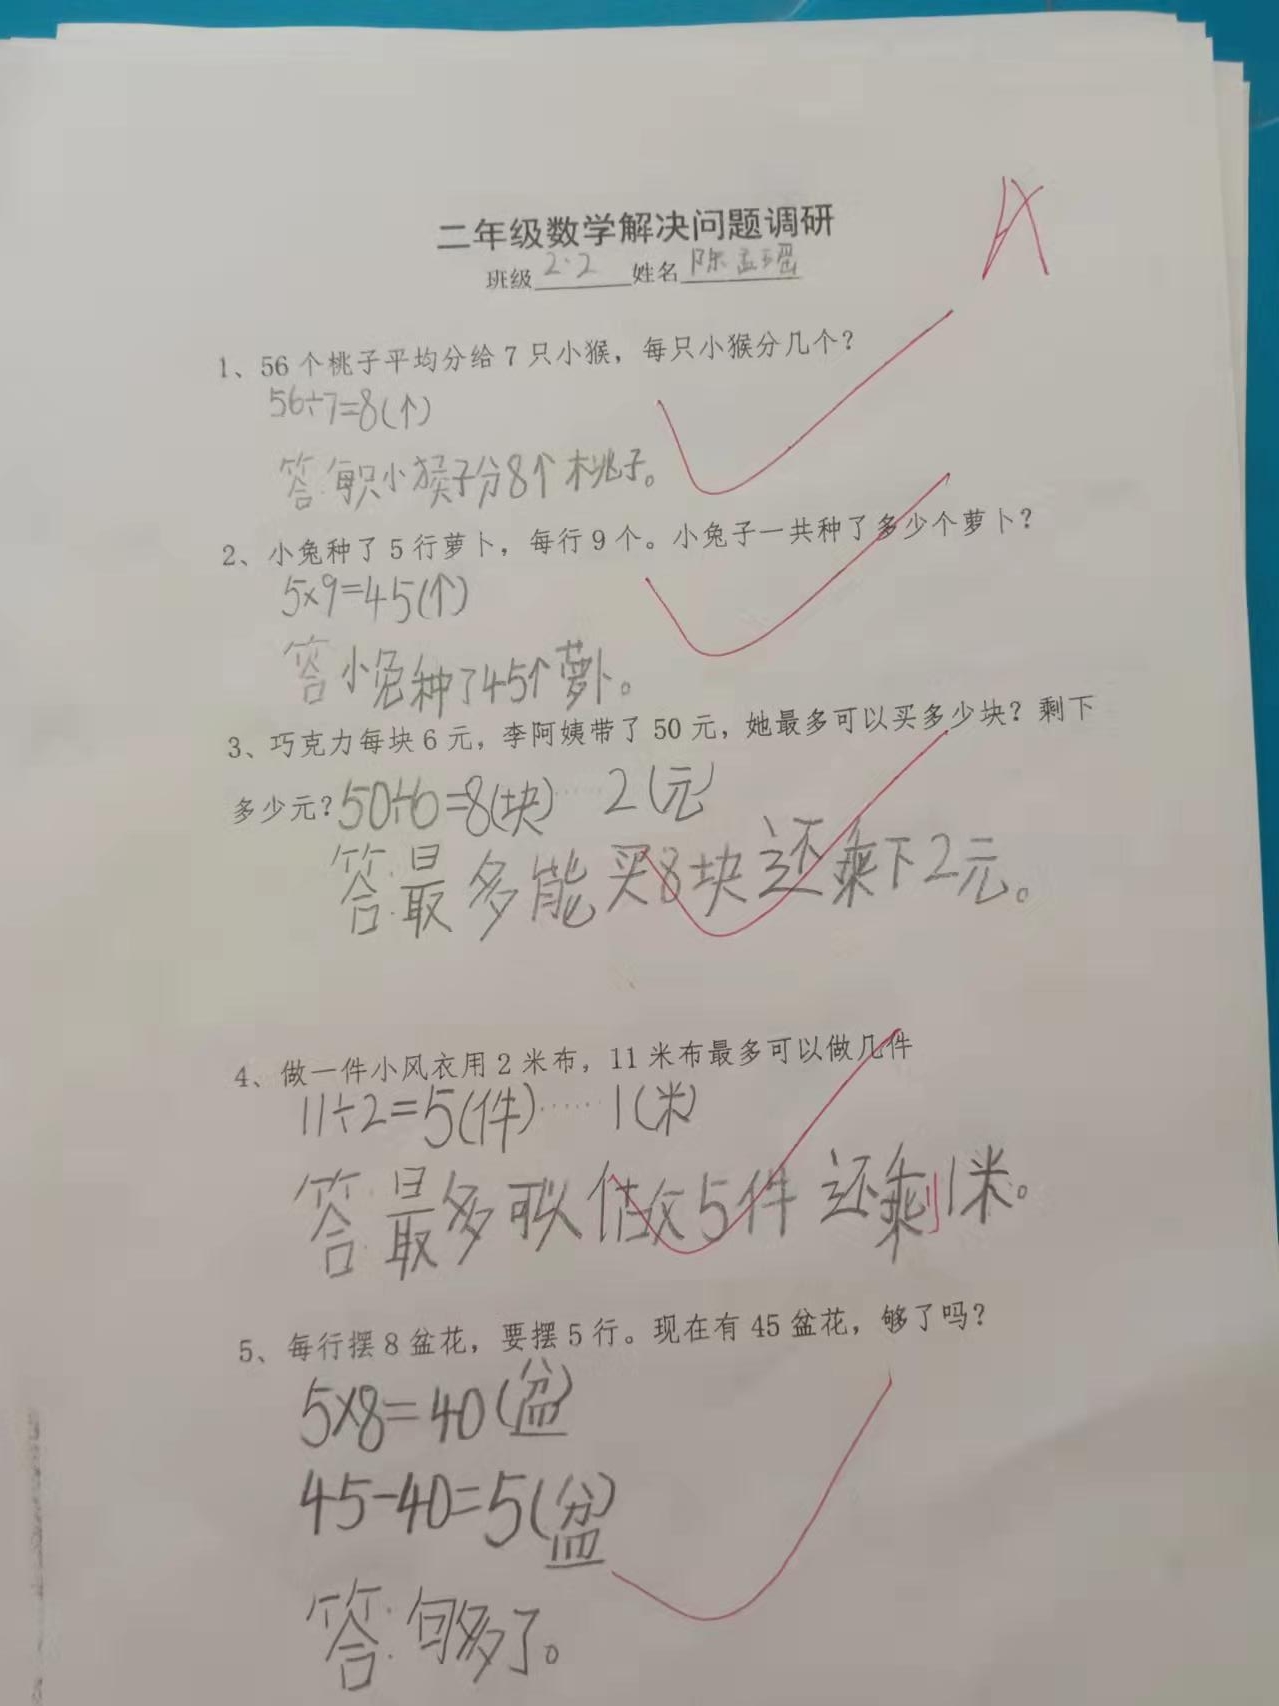 A
二年级数学解决问题调研
班级 2.2 姓名 陈孟瑶
1、56个桃子平均分给7只小猴，每只小猴分几个？
56÷7=8(个)
答:每只小猴子分8个桃子。
2、小兔种了5行萝卜，每行9个。小兔子一共种了多少个萝卜？
5×9=45(个)
答 小兔种了45个萝卜。
3、巧克力每块6元，李阿姨带了50元，她最多可以买多少块？剩下
多少元？50÷6=8(块)……2(元)
答:最多能买8块还剩下2元。
4、做一件小风衣用2米布，11米布最多可以做几件
11÷2=5(件)……1(米)
答:最多可以做5件 还剩1米。
5、每行摆8盆花，要摆5行。现在有45盆花，够了吗？
5×8=40(盆)
45-40=5(盆)
答:够了。